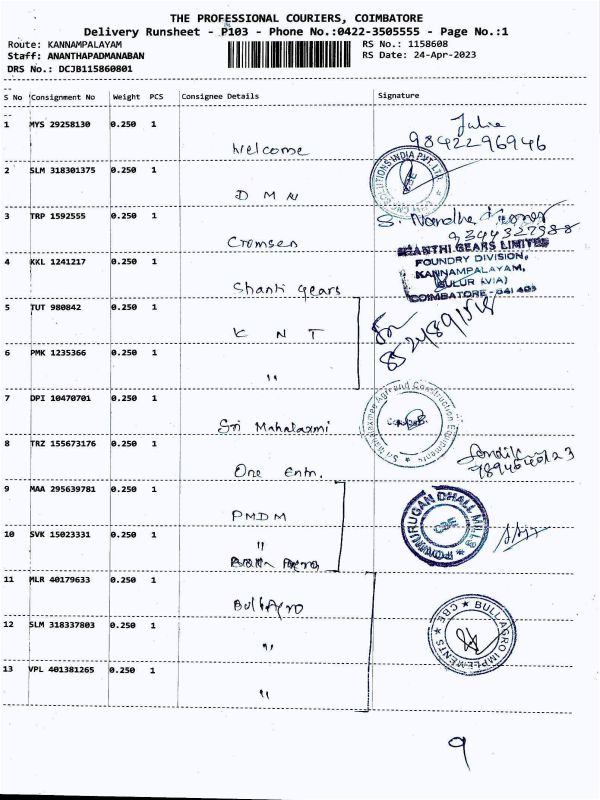 THE PROFESSIONAL COURIERS, COIMBATORE
Delivery Runsheet - P103 - Phone No.:0422-3505555 - Page No.:1
Route: KANNAMPALAYAM
RS No.: 1158608
Staff: ANANTHAPADMANABAN
RS Date: 24-Apr-2023
DRS No.: DCJB115860801
S No Consignment No Weight PCS Consignee Details Signature
1 MYS 29258130 0.250 1
Welcome
9842296946
2 SLM 318301375 0.250 1
D M N
SOLUTIONS INDIA PVT. LTD.
CBE
3 TRP 1592555 0.250 1
Cromsen
S. Nandha
4 KKL 1241217 0.250 1
Shanti gears
SHANTHI GEARS LIMITED
FOUNDRY DIVISION,
KANNAMPALAYAM,
SULUR (VIA)
COIMBATORE - 641 403
5 TUT 980842 0.250 1
K N T
6 PMK 1235366 0.250 1
"
7 DPI 10470701 0.250 1
Sri Mahalaxmi
Construction Equipments
8 TRZ 155673176 0.250 1
One Entr.
9 MAA 295639781 0.250 1
PMDM
PONMURUGAN DHALL MILLS
CBE
10 SVK 15023331 0.250 1
"
11 MLR 40179633 0.250 1
Bull Agro
BULL AGRO IMPLEMENTS
CBE
12 SLM 318337803 0.250 1
"
13 VPL 401381265 0.250 1
"
9